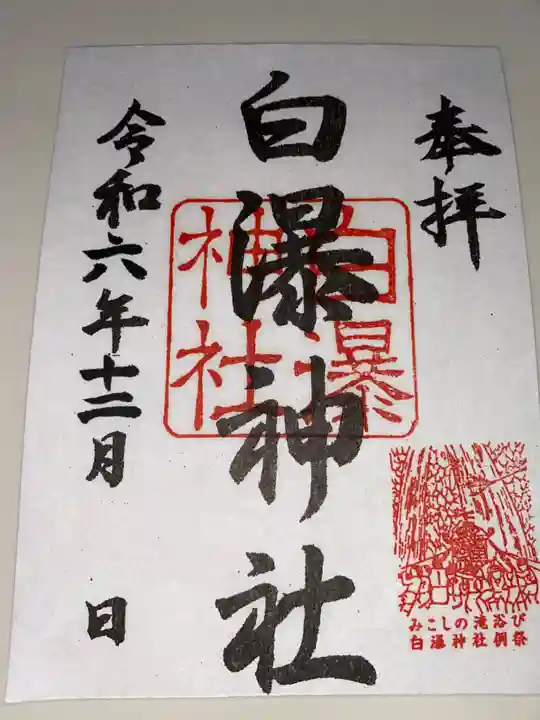 奉拝
白瀑神社
白瀑
神社
令和六年十二月　日
みこしの滝浴び
白瀑神社例祭